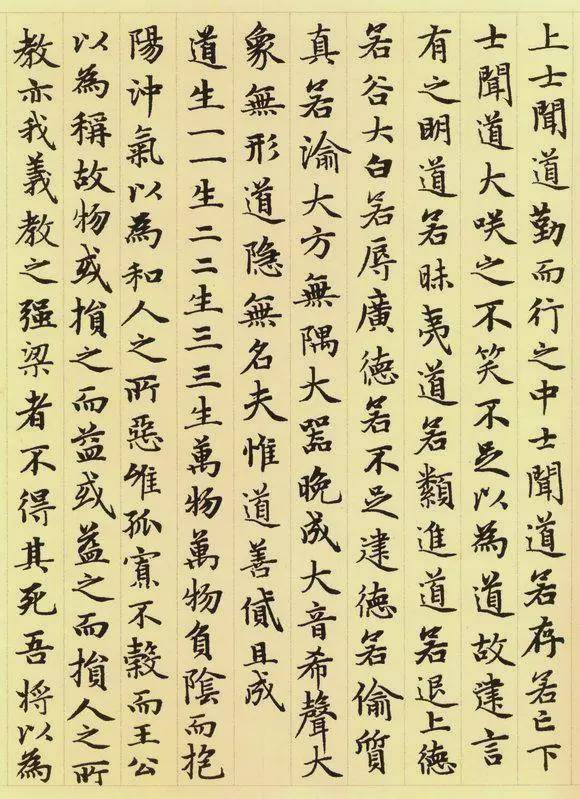 上士聞道勤而行之中士聞道若存若亡下
士聞道大咲之不笑不足以為道故建言
有之明道若昧夷道若類進道若退上德
若谷大白若辱廣德若不足建德若偷質
真若渝大方無隅大器晚成大音希聲大
象無形道隱無名夫惟道善貸且成
道生一一生二二生三三生萬物萬物負陰而抱
陽沖氣以為和人之所惡惟孤寡不穀而王公
以為稱故物或損之而益或益之而損人之所
教亦我義教之强梁者不得其死吾將以為